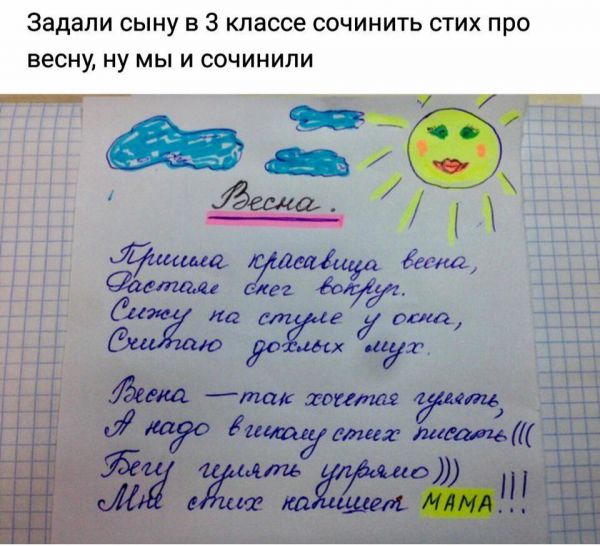 Задали сыну в 3 классе сочинить стих про
весну, ну мы и сочинили
Весна.
Пришла красавица весна,
Растаял снег вокруг.
Сижу на стуле у окна,
Считаю дохлых мух.
Весна — так хочется гулять,
А надо в школу стих писать(((
Бегу гулять упрямо)))
Мне стих напишет МАМА!!!